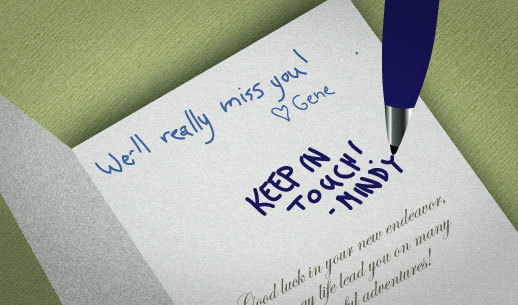 We'll really miss you!
♡ Gene
KEEP IN
TOUCH!
- MINDY
Good luck in your new endeavor,
life lead you on many
adventures!